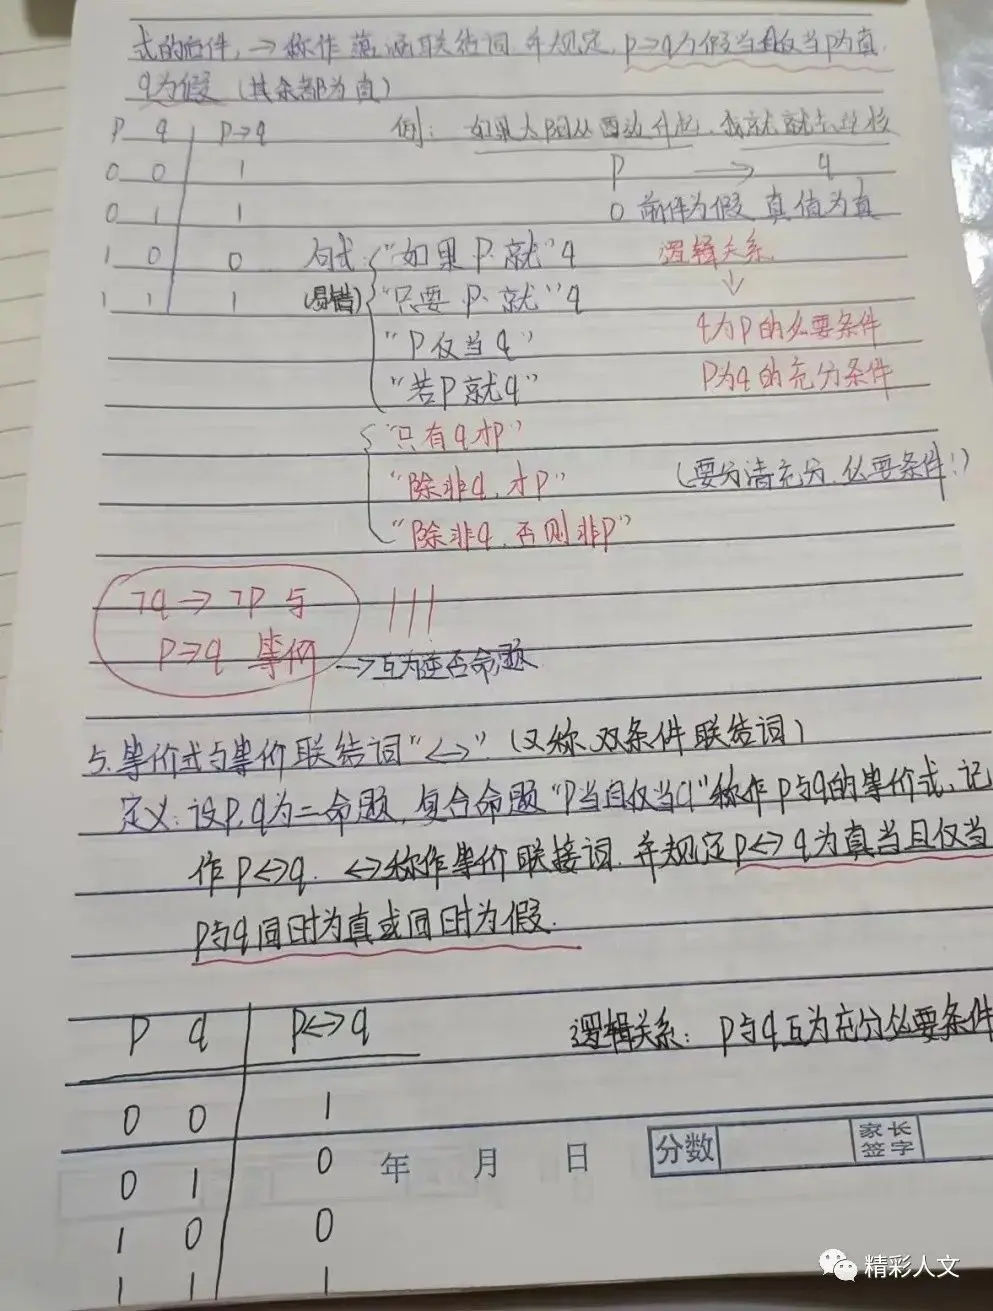 式的后件，→称作蕴涵联结词，并规定，p→q为假当且仅当p为真
q为假（其余都为真）
p q p→q 例：如果太阳从西边升起，我就就
0 0 1 p → q
0 1 1 0 前件为假 真值为真
1 0 0 句式 “如果p.就”q 逻辑关系
1 1 1 (易错) “只要p.就”q ↓
“p仅当q” q为p的必要条件
“若p就q” p为q的充分条件
“只有q才p”
“除非q，才p” （要分清充分，必要条件！）
“除非q，否则非p”
¬q→¬p 与
p→q 等价 → 互为逆否命题
5. 等价式与等价联结词“<->”（又称双条件联结词）
定义：设p，q为二命题，复合命题“p当且仅当q”称作p与q的等价式，记
作p<->q. <->称作等价联接词，并规定p<->q为真当且仅当
p与q同时为真或同时为假.
p q p<->q 逻辑关系：p与q互为充分必要条件
0 0 1
0 1 0 年 月 日 分数 家长签字
1 0 0
1 1 1
精彩人文